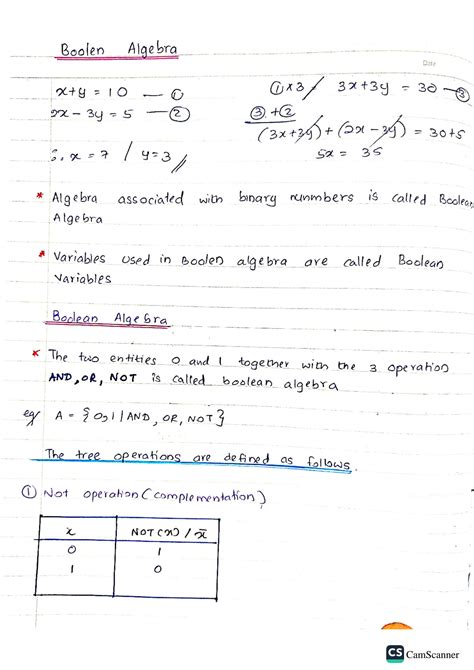 Boolen Algebra
Date
x+y = 10 — ①
①×3 / 3x+3y = 30 — ③
2x - 3y = 5 — ②
③ + ②
(3x+3y)+(2x-3y) = 30+5
5x = 35
∴ x = 7 / y=3 //
* Algebra associated with binary nunmbers is called Boolean
Algebra
* Variables used in Boolen algebra are called Boolean
Variables
Boolean Algebra
* The two entities 0 and 1 together with the 3 operation
AND, OR, NOT is called boolean algebra
eg/ A = {0,1 | AND, OR, NOT}
The tree operations are defined as follows.
① Not operation (complementation)
x NOT(x) / x̅
0 1
1 0
CS CamScanner